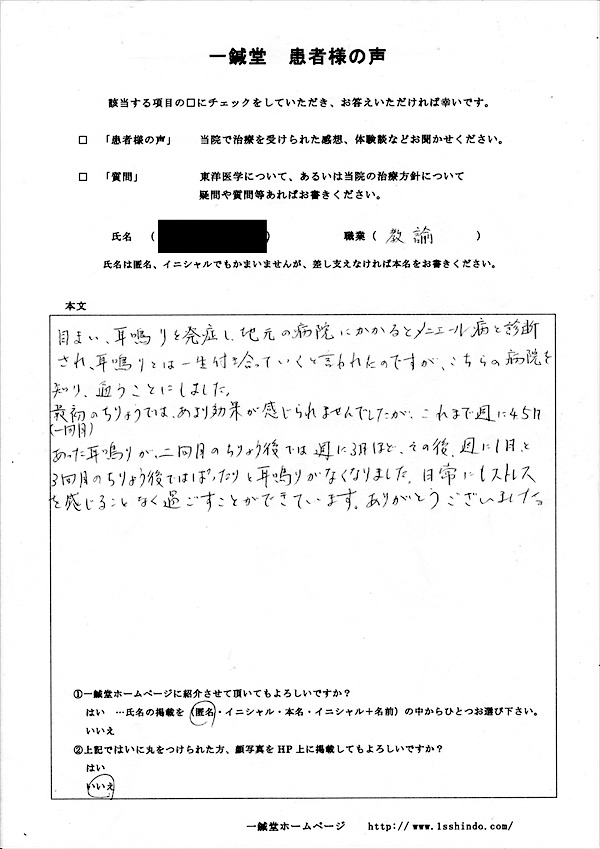 一鍼堂 患者様の声
該当する項目の□にチェックをしていただき、お答えいただければ幸いです。
□ 「患者様の声」 当院で治療を受けられた感想、体験談などお聞かせください。
□ 「質問」 東洋医学について、あるいは当院の治療方針について
疑問や質問等あればお書きください。
氏名 ( ) 職業 ( 教諭 )
氏名は匿名、イニシャルでもかまいませんが、差し支えなければ本名をお書きください。
本文
目まい、耳鳴りを発症し、地元の病院にかかるとメニエール病と診断
され、耳鳴りとは一生付き合っていくと言われたのですが、こちらの病院を
知り、通うことにしました。
最初のちりょうでは、あまり効果が感じられませんでしたが、これまで週に4.5日
(一回目)
あった耳鳴りが、二回目のちりょう後では週に3日ほど、その後、週に1日、と
3回目のちりょう後ではぱったりと耳鳴りがなくなりました。日常にもストレス
を感じることなく過ごすことができています。ありがとうございました。
①一鍼堂ホームページに紹介させて頂いてもよろしいですか?
はい …氏名の掲載を (匿名・イニシャル・本名・イニシャル+名前) の中からひとつお選び下さい。
いいえ
②上記ではいに丸をつけられた方、顔写真を HP 上に掲載してもよろしいですか?
はい
いいえ
一鍼堂ホームページ http://www.1sshindo.com/